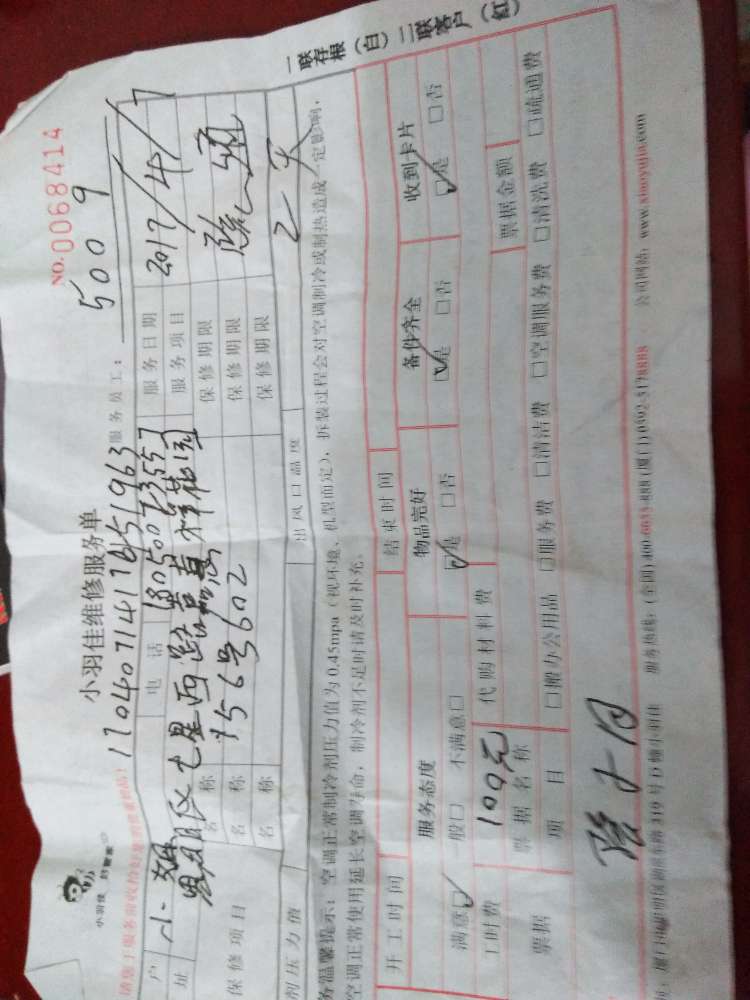 一联存根（白）二联客户（红）
NO.0068414
小羽佳维修服务单
小羽佳 好管家
17040714176451963
服务员工：5009
户 小姐 电话 18050073557 服务日期 2017/4/7
址 思明区七星西路 祥花园 服务项目 疏通
756号602
保修项目 名称 保修期限
名称 保修期限
名称 保修期限 2天
剂压力值 出风口温度
务温馨提示：空调正常制冷剂压力值为0.45mpa（视环境、机型而定），拆装过程会对空调制冷或制热造成一定影响，
空调正常使用延长空调寿命，制冷剂不足时请及时补充。
开工时间 结束时间
服务态度 物品完好 备件齐全 收到卡片
满意☑ 一般□ 不满意□ ☑是 □否 ☑是 □否 ☑是 □否
工时费 100元 代购材料费
票据 票据名称 票据金额
项目 □搬办公用品 □服务费 □清洁费 □空调服务费 □清洗费 □疏通费
319号D幢小羽佳 服务热线：(全国)400-6633-888 (厦门)0592-5178888 公司网站：www.xiaoyujia.com